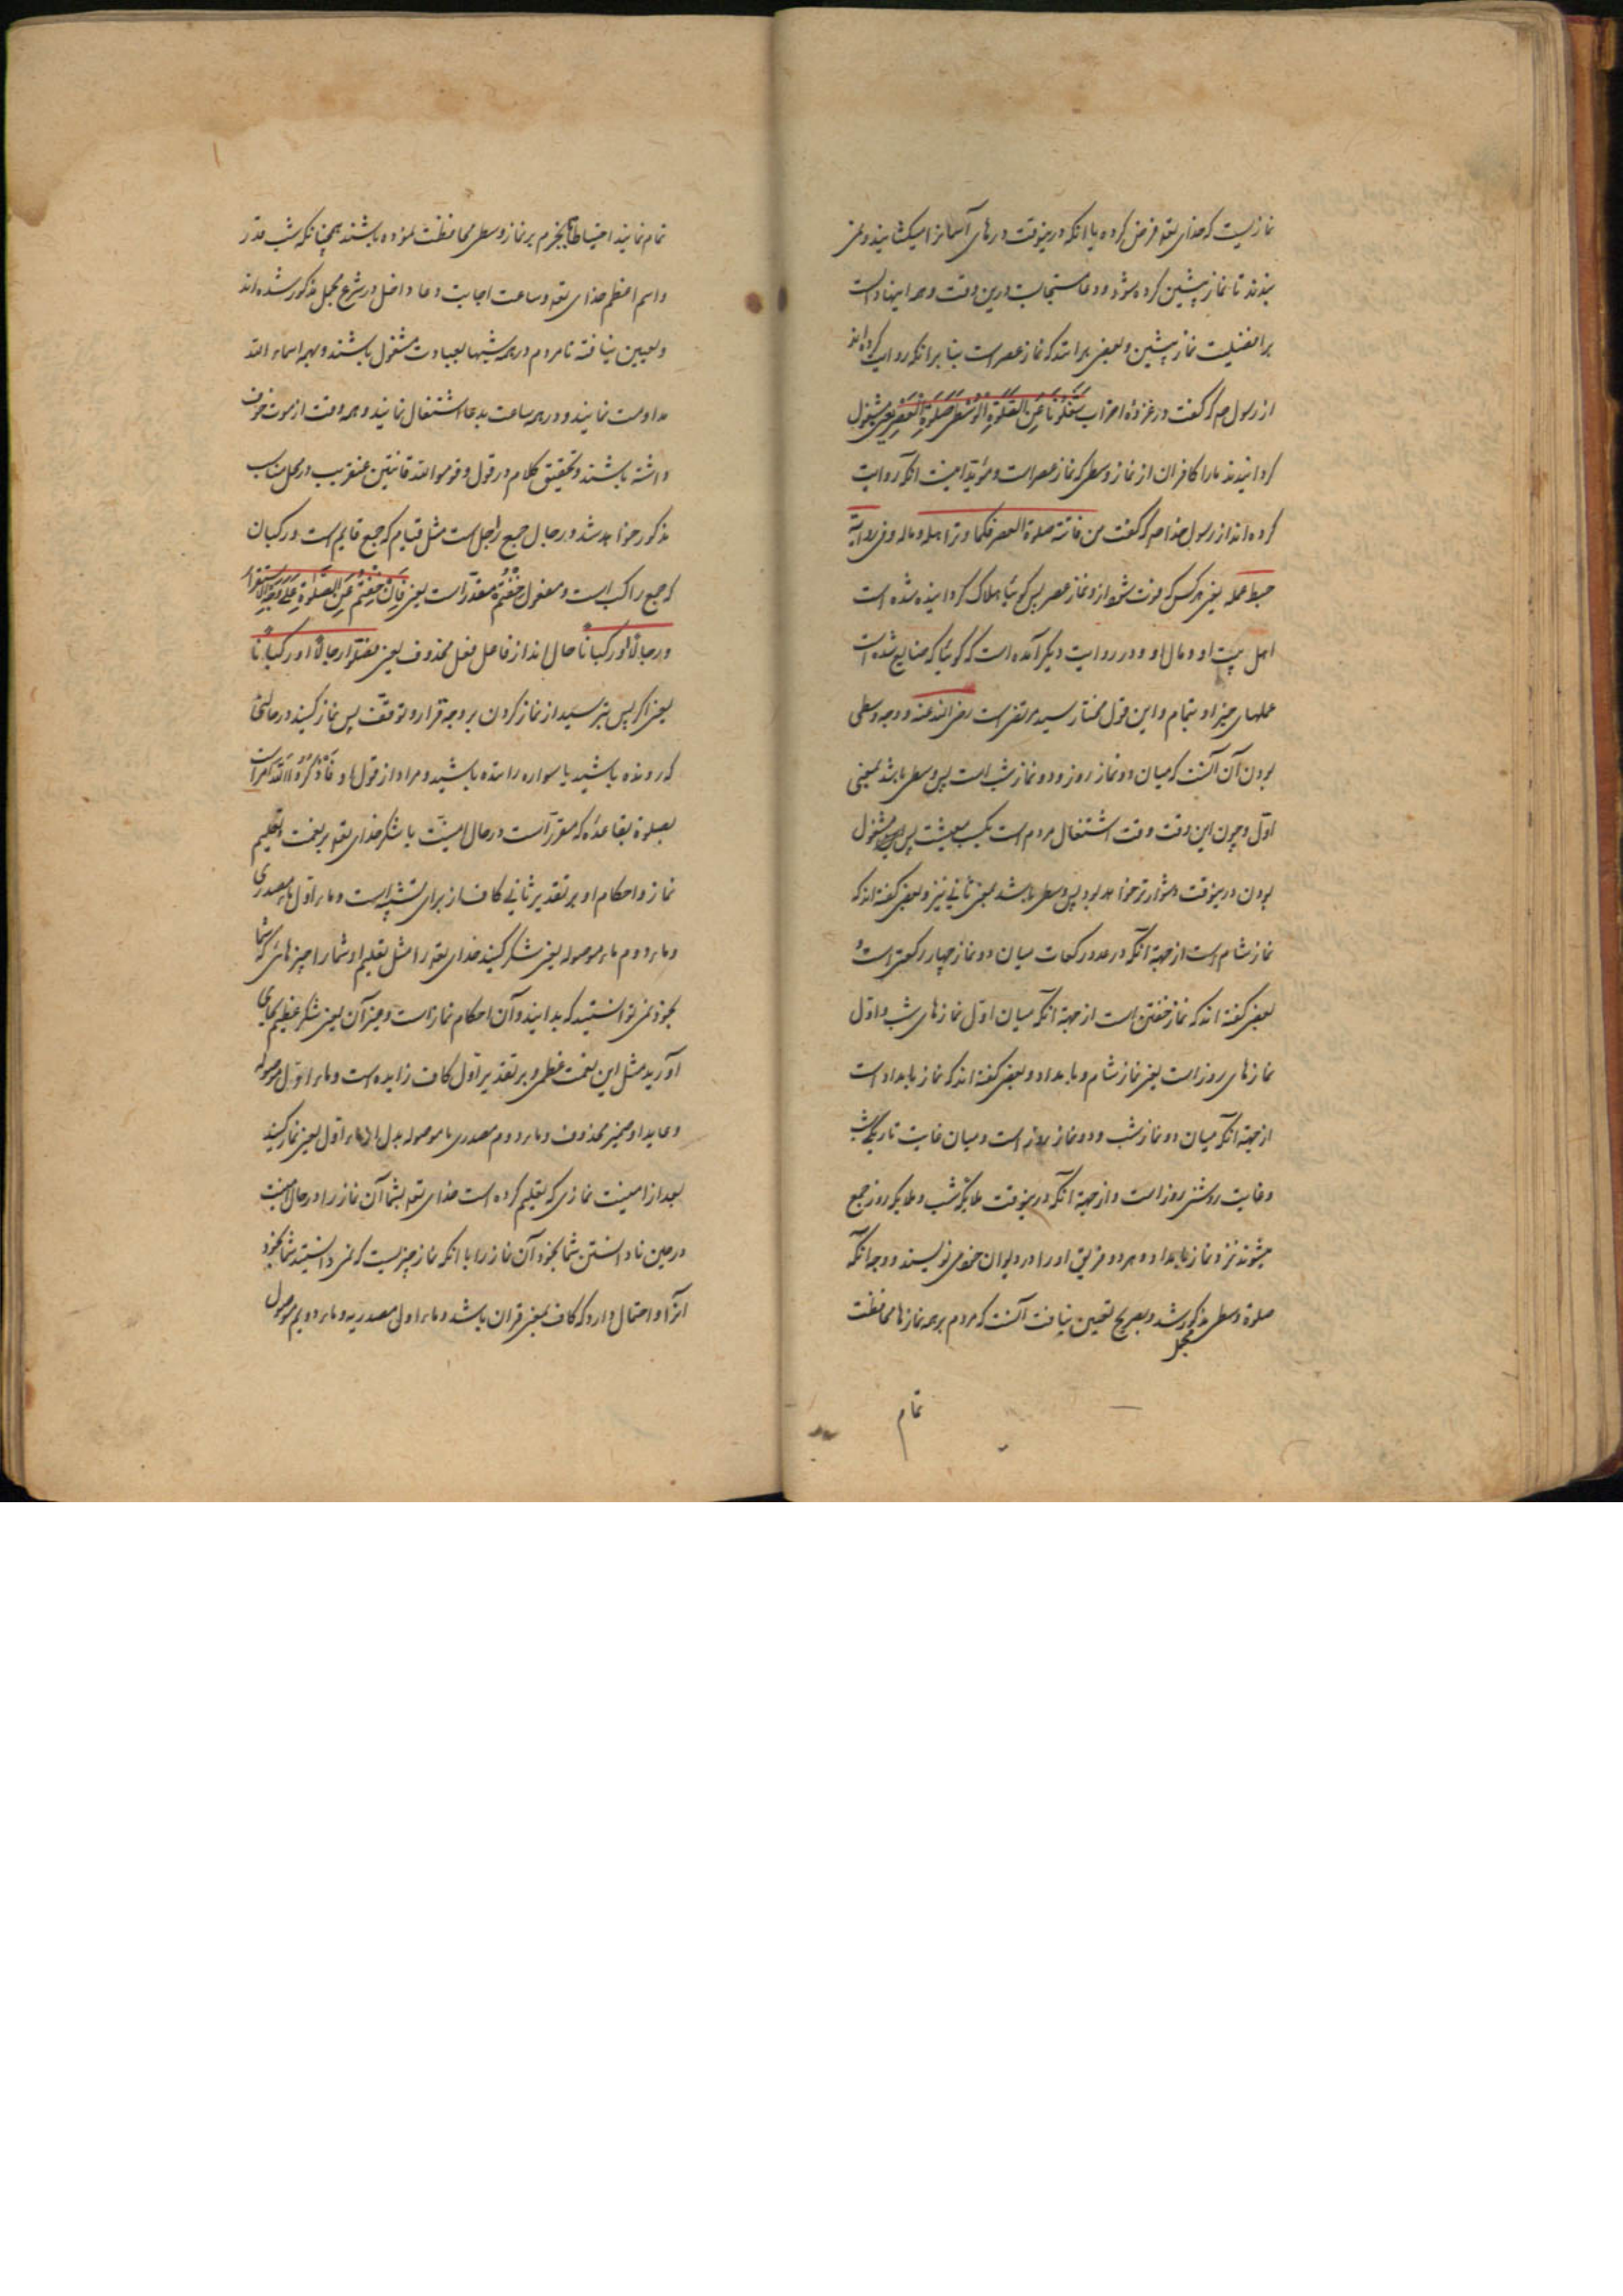 نمازیست که خدای تعه فرض کرده با آنکه درینوقت درهای آسمانرا میکشایند و نمی
بندند تا نماز پیشین کرده شود و دعا مستجابست درین وقت و همه اینها دالست
بر افضلیت نماز پیشین و بعضی برانند که نماز عصر است بنا بر آنکه روایت کرده‌اند
از رسول صم که گفت در غزوهٔ احزاب شَغَلُونَا عَنِ الصَّلٰوةِ الْوُسْطٰى صَلٰوةِ الْعَصْرِ یعنی مشغول
کردانیدند ما را کافران از نماز وسطی که نماز عصر است و مؤید اینست آنکه روایت
کرده‌اند از رسول خدا صم که گفت من فاتته صلوة العصر فکانما وتر اهله و ماله و فی روایة
حبط عمله یعنی هر کس که فوت شود ازو نماز عصر پس کوئیا هلاک کردانیده شده است
اهل بیت او و مال او و در روایت دیگر آمده است که کوئیا که ضایع شده است
عملهای خیر او بتمام و این قول مختار سید مرتضی است رضی الله عنه و وجه وسطی
بودن آن آنست که میان دو نماز روز و دو نماز شب است پس وسطی باشد بمعنی
اول و چون این وقت وقت اشتغال مردم است بکسب معیشت پس مشغول
بودن درینوقت دشوارتر خواهد بود پس وسطی باشد بمعنی ثانی نیز و بعضی گفته‌اند که
نماز شام است از جهة آنکه در عدد رکعات میان دو نماز چهار رکعتی است و
بعضی گفته‌اند که نماز خفتن است از جهة آنکه میان اول نمازهای شب و اول
نمازهای روز است یعنی نماز شام و بامداد و بعضی گفته‌اند که نماز بامداد است
از جهة آنکه میان دو نماز شب و دو نماز روز است و میان غایت تاریکی شب
و غایت روشنی روز است و از جهة آنکه درینوقت ملایکه شب و ملایکه روز جمع
میشوند نزد نماز بامداد و هر دو فریق او را در دیوان خود می نویسند و وجه آنکه
صلوة وسطی مجمل مذکور شد و بصریح تعیین نیافت آنست که مردم بر همه نمازها محافظت
تمام
تمام نمایند احتیاطا تا بجزم بر نماز وسطی محافظت نموده باشند همچنانکه شب قدر
و اسم اعظم خدای تعه و ساعت اجابت دعا داخل در شرع مجمل مذکور شده‌اند
و تعیین نیافته تا مردم در همه شبها بعبادت مشغول باشند و بهمه اسماء الله
مداومت نمایند و در همه ساعت بدعا اشتغال نمایند و همه وقت از موت خوف
داشته باشند و تحقیق کلام در قول و قوموا لله قانتین عنقریب در محل مناسب
مذکور خواهد شد و رجال جمع راجل است مثل قیام که جمع قایم است و رکبان
که جمع راکب است و مفعول خِفْتُمْ مقدّر است یعنی فَاِنْ خِفْتُمْ عَنِ الصَّلٰوةِ عَلٰى وَجْهِ الاستقرار
و رجالاً او رکباناً حال‌اند از فاعل فعل محذوف یعنی فصلّوا رجالاً او رکباناً
یعنی اگر پس بترسید از نماز کردن بر وجه قرار و توقف پس نماز کنید در حالتی
که رونده باشید یا سواره رانده باشید و مراد از قول ها و فَاذْكُرُوا اللهَ امر است
بصلوة بقاعده که مقرر است در حال امنیّت یا شکر خدای تعه بر نعمت و تعلیم
نماز و احکام او بر تقدیر ثانی کاف از برای تشبیه است و ماء اول ماء مصدری
و ماء دوم ماء موصوله یعنی شکر کنید خدای تعه را مثل تعلیم او شما را چیزهائی که شما
بخود نمی توانستید که بدانید و آن احکام نماز است و غیر آن یعنی شکر عظیم بجای
آورید مثل این نعمت عظمی و بر تقدیر اول کاف زایده است و ماء اول موصوله
و عاید او ضمیر محذوف و ماء دوم مصدری یا موصوله بدل از ماء اول یعنی نماز کنید
بعد از امنیت نمازی که تعلیم کرده است خدای تعه بشما آن نماز را در حال امنیت
در حین نادانستن شما بخود آن نماز را با آنکه نماز چیزیست که نمی دانستید شما بخود
آنرا و احتمال دارد که کاف بمعنی قران باشد و ماء اولی مصدریه و ماء دویم موصول